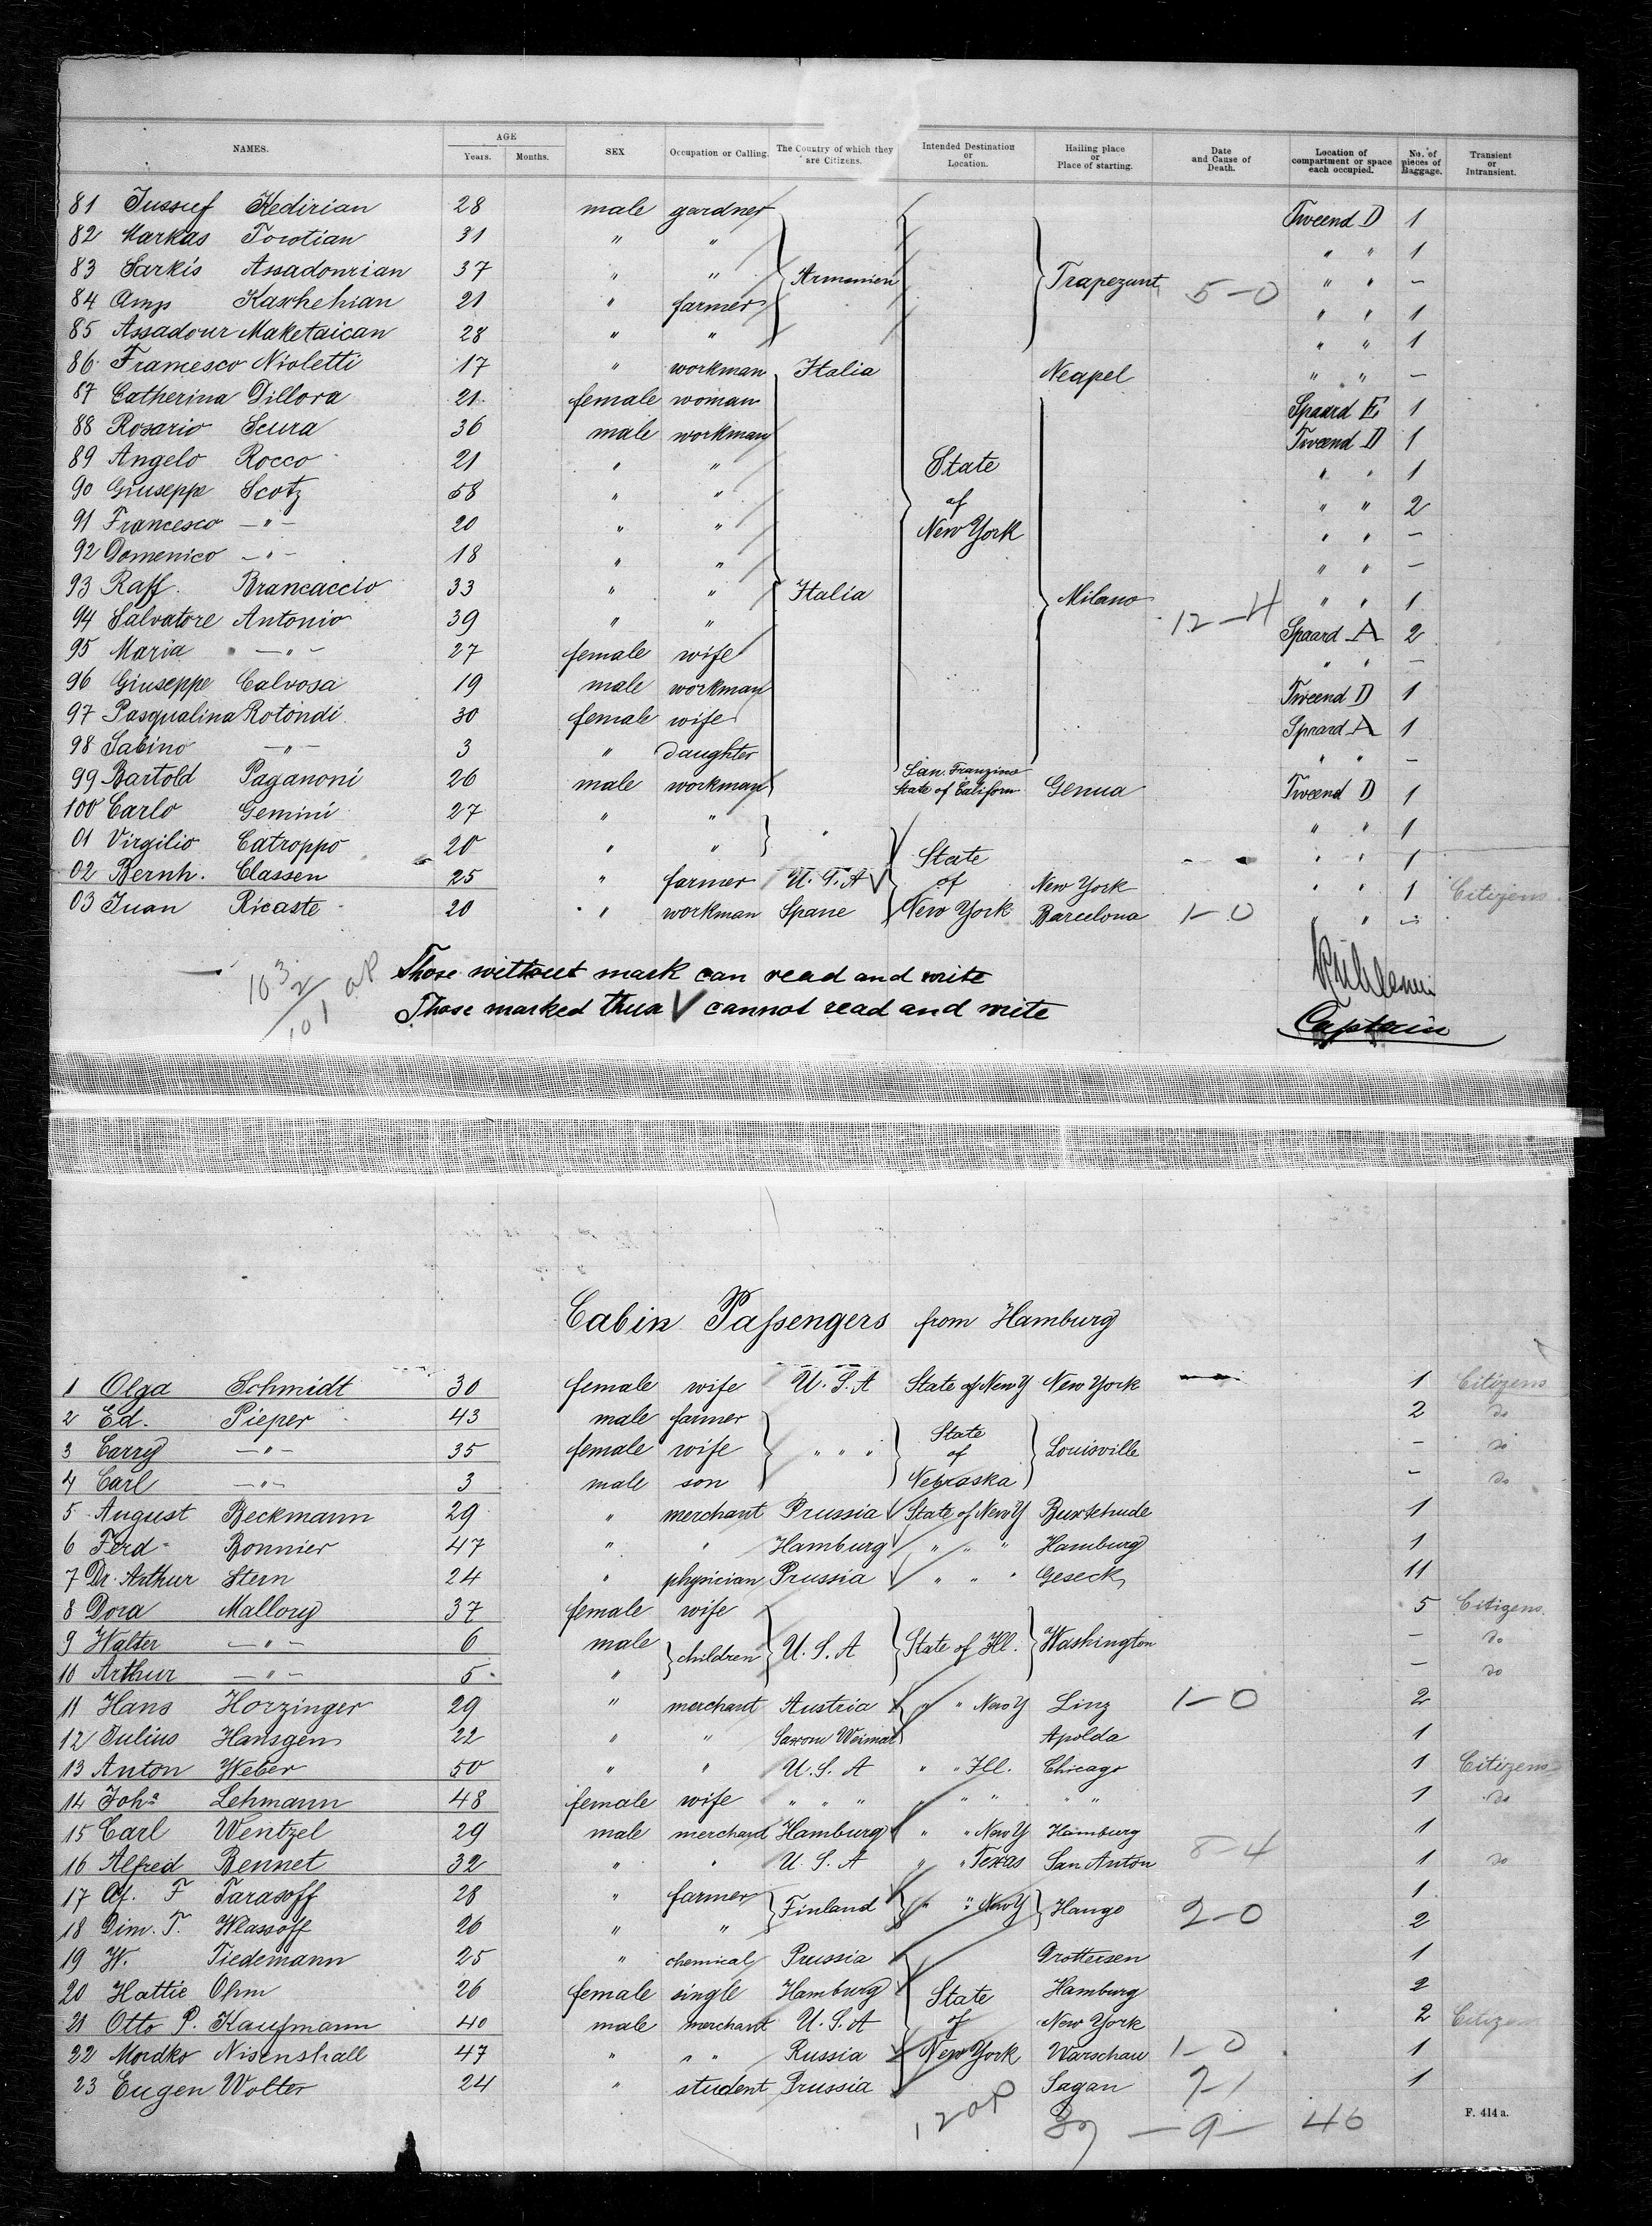 NAMES. AGE Years. Months. SEX Occupation or Calling. The Country of which they are Citizens. Intended Destination or Location. Hailing place or Place of starting. Date and Cause of Death. Location of compartment or space each occupied. No. of pieces of Baggage. Transient or Intransient.
81 Jussuf Kedirian 28 male gardner Tweend D 1
82 Markas Torotian 31 " " " " 1
83 Sarkis Assadourian 37 " " Armenien Trapezunt 5-0 " " –
84 Amp Kaschehian 21 " farmer " " 1
85 Assadour Maketaican 28 " " " " 1
86 Francesco Nioletti 17 " workman Italia Neapel " " –
87 Catherina Dillora 21 female woman Spaard E 1
88 Rosario Scura 36 male workman Tweend D 1
89 Angelo Rocco 21 " " State " " 1
90 Giuseppe Scotz 58 " " of " " 2
91 Francesco –"– 20 " " New York " " –
92 Domenico –"– 18 " " " " –
93 Raff. Brancaccio 33 " " Italia Milano " " 1
94 Salvatore Antonio 39 " " 12-4 Spaard A 2
95 Maria –"– 27 female wife " " –
96 Giuseppe Calvosa 19 male workman Tweend D 1
97 Pasqualina Rotondi 30 female wife Spaard A 1
98 Sabino –"– 3 " daughter " " –
99 Bartold Paganoni 26 male workman San Franzino State of Californ Genua Tweend D 1
100 Carlo Gemini 27 " " " " " 1
01 Virgilio Catroppo 20 " " State " " 1
02 Bernh. Classen 25 " farmer U. S. A of New York " " 1 Citizens
03 Juan Ricaste 20 " workman Spane New York Barcelona 1-0 " " –
103
2
101 Those without mark can read and write
Those marked thus V cannot read and write
Captain
Cabin Passengers from Hamburg
1 Olga Schmidt 30 female wife U. S. A State of New Y New York 1 Citizens
2 Ed. Pieper 43 male farmer State 2 do
3 Carry –"– 35 female wife " " " of Louisville – do
4 Carl –"– 3 male son Nebraska – do
5 August Beckmann 29 " merchant Prussia State of New Y Buxtehude 1
6 Ferd Bonnier 47 " " Hamburg " " " Hamburg 1
7 Dr. Arthur Stern 24 " physician Prussia " " " Geseck 11
8 Dora Mallory 37 female wife 5 Citizens
9 Walter –"– 6 male children U. S. A State of Ill. Washington – do
10 Arthur –"– 5 " – do
11 Hans Horzinger 29 " merchant Austria " " New Y Linz 1-0 2
12 Julius Hansgen 22 " " Saxone Weimar Apolda 1
13 Anton Weber 50 " " U. S. A " " Ill. Chicago 1 Citizens
14 Joha Lehmann 48 female wife " " " " " " " " 1 do
15 Carl Wentzel 29 male merchand Hamburg " " New Y Hamburg 1
16 Alfred Bennet 32 " " U. S. A " " Texas San Anton 8-4 1 do
17 Af. F Tarasoff 28 " farmer Finland " " New Y Hango 2-0 1
18 Dim. T. Wlassoff 26 " " 2
19 W. Tiedemann 25 " chemical Prussia Grottersen 1
20 Hattie Ohm 26 female single Hamburg State Hamburg 2
21 Otto P. Kaufmann 40 male merchant U. S. A of New York 2 Citizen
22 Mordko Nisenshall 47 " " " Russia New York Warschau 1-0 1
23 Eugen Wolter 24 " student Prussia Sagan 7-1 1
37 – 9 – 46
F. 414 a.